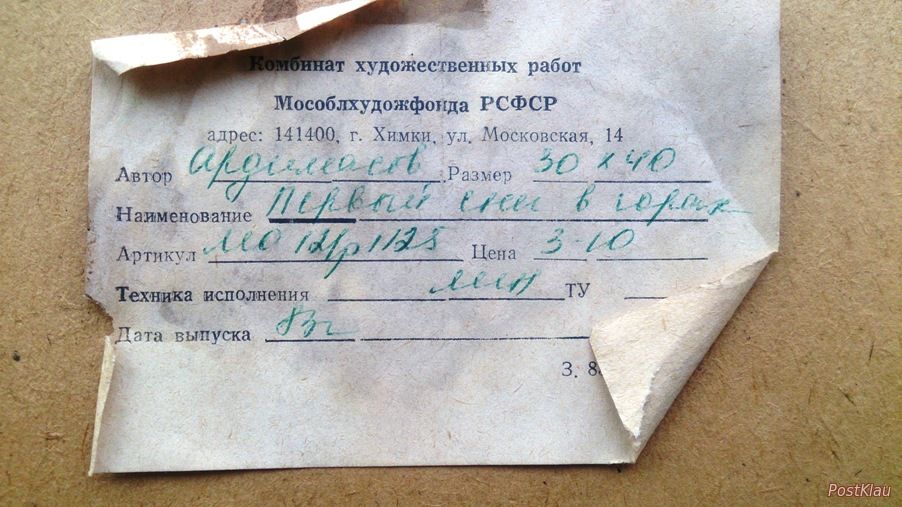 Комбинат художественных работ
Мособлхудожфонда РСФСР
адрес: 141400, г. Химки, ул. Московская, 14
Автор Ардимасов Размер 30 х 40
Наименование Первый снег в горах
Артикул МО 12/р 1125 Цена 3-10
Техника исполнения ТУ
Дата выпуска 83г
З. 8
PostKlau